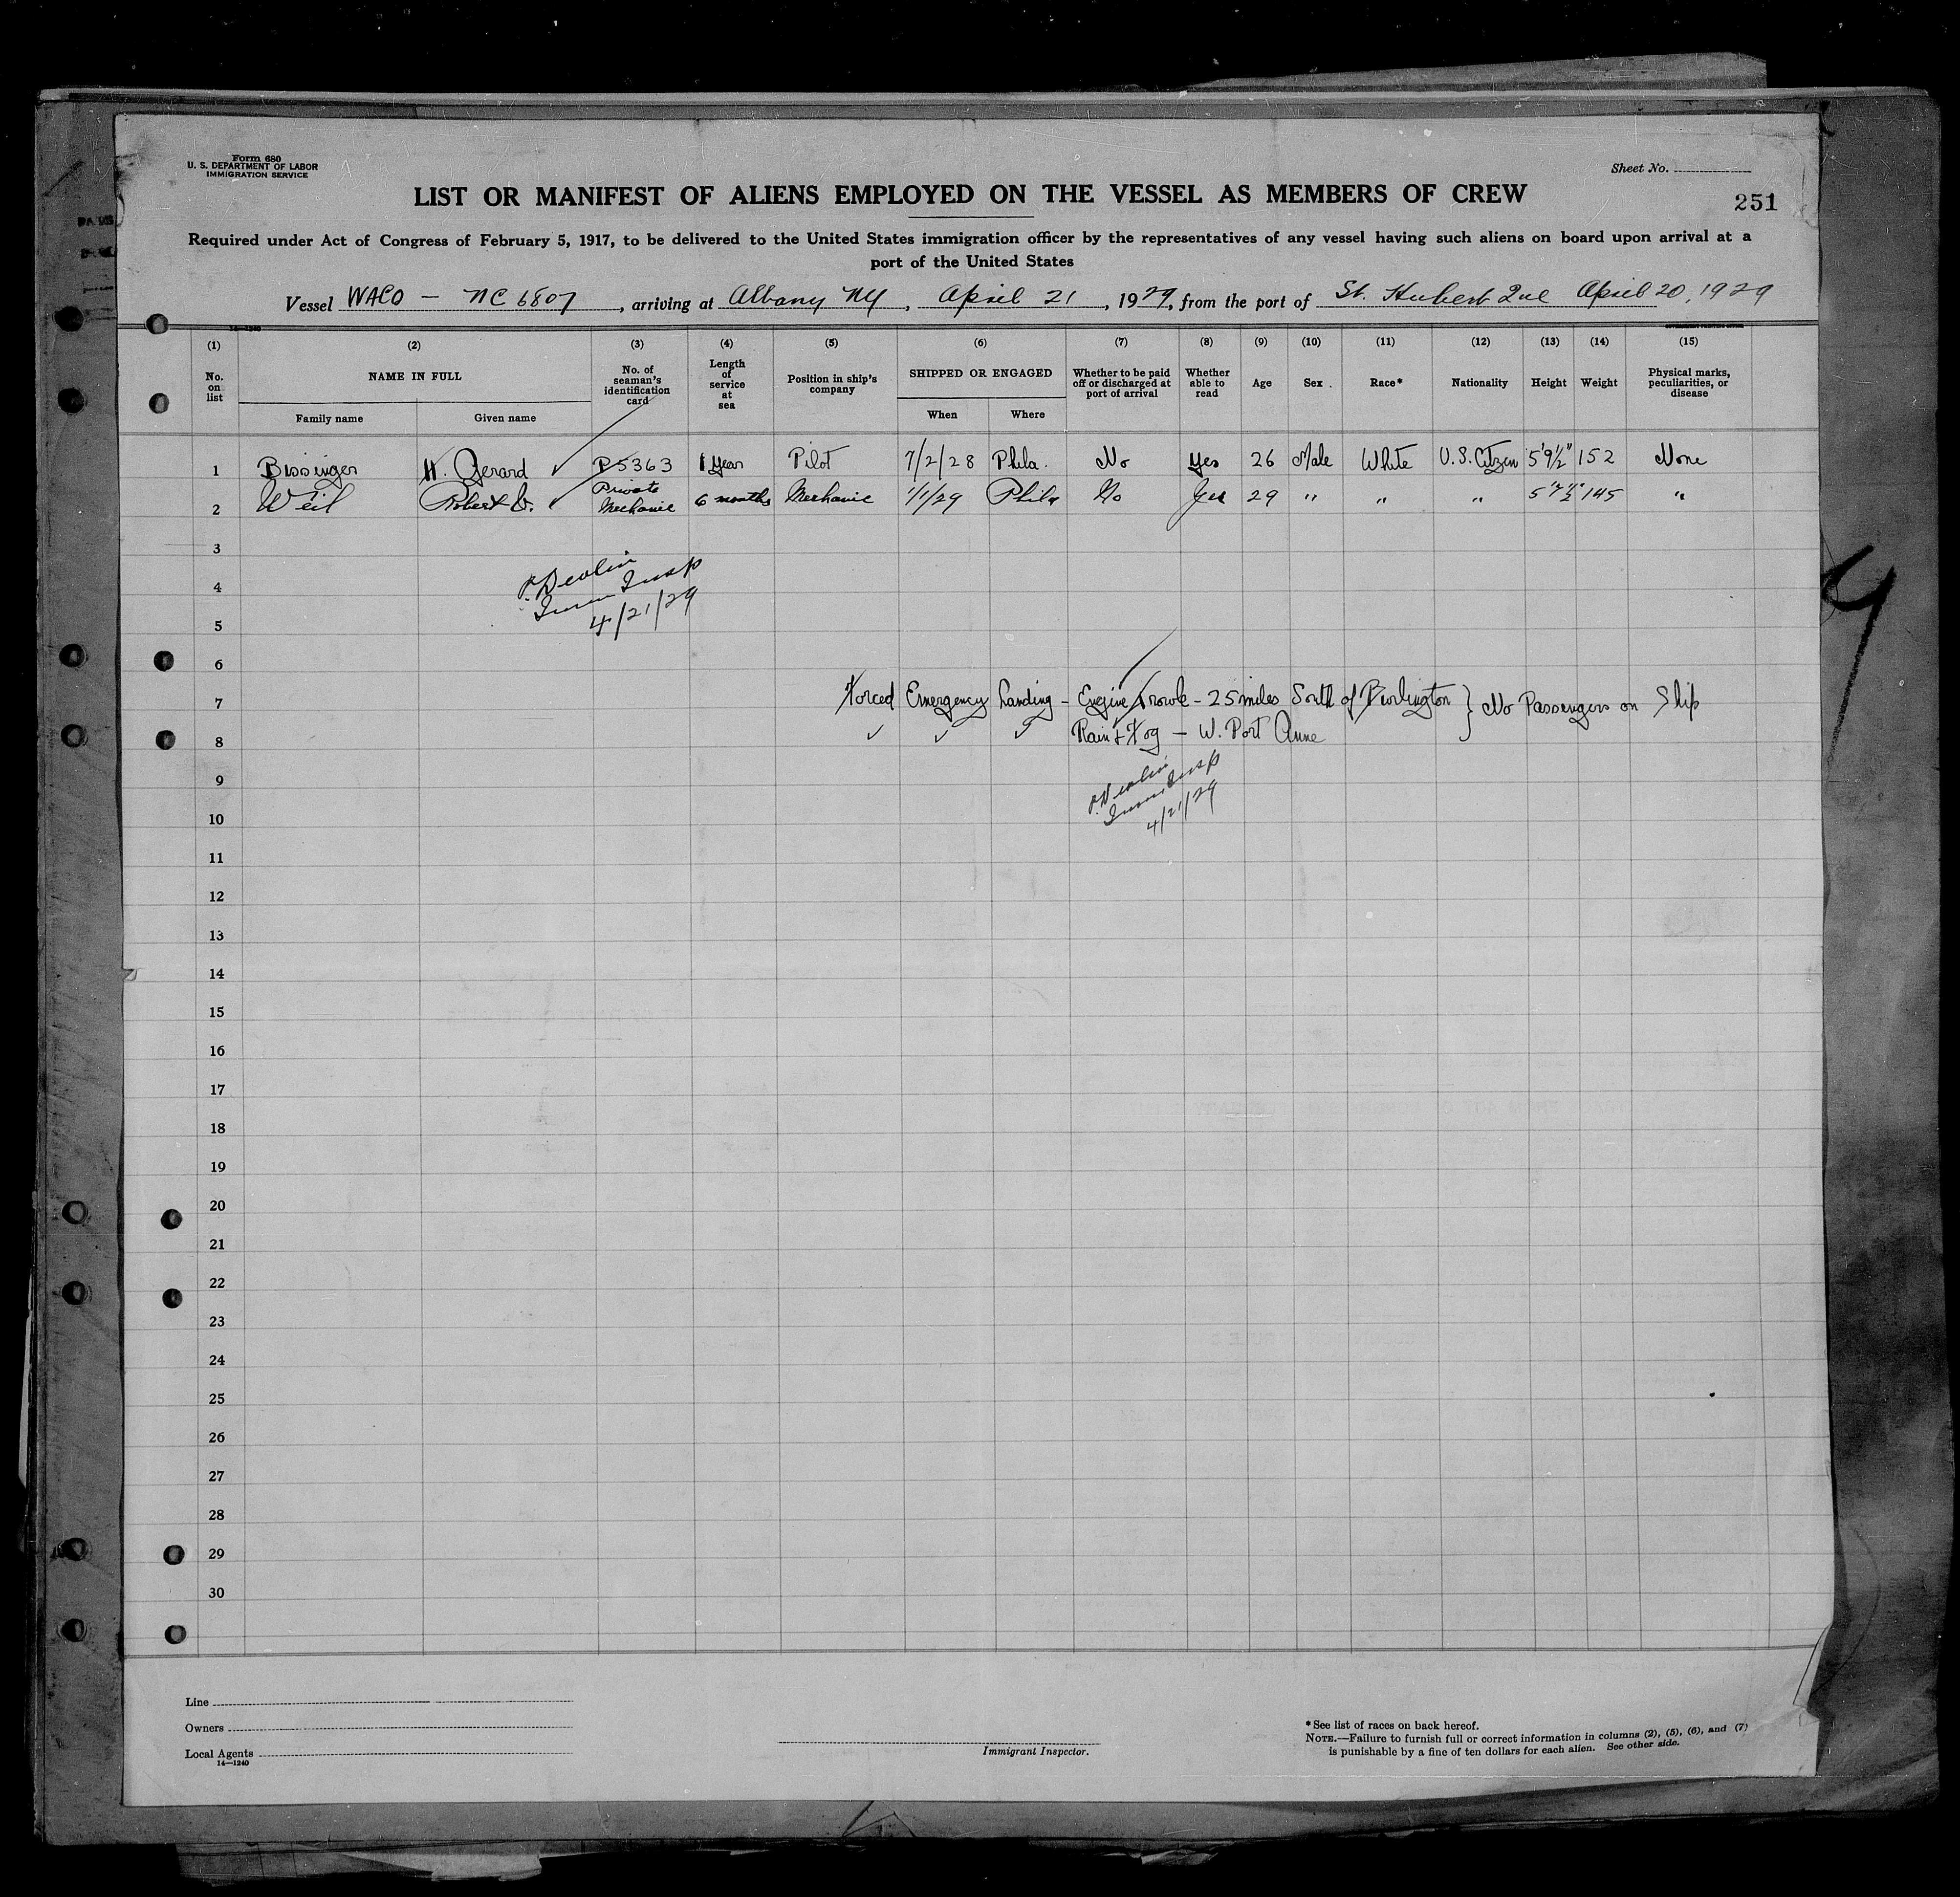 Form 680
U. S. DEPARTMENT OF LABOR
IMMIGRATION SERVICE
Sheet No.
LIST OR MANIFEST OF ALIENS EMPLOYED ON THE VESSEL AS MEMBERS OF CREW
251
Required under Act of Congress of February 5, 1917, to be delivered to the United States immigration officer by the representatives of any vessel having such aliens on board upon arrival at a
port of the United States
Vessel WACO - NC 6807, arriving at Albany NY, April 21, 1929, from the port of St. Hubert Que April 20, 1929
14-1240
GOVERNMENT PRINTING OFFICE
(1) (2) (3) (4) (5) (6) (7) (8) (9) (10) (11) (12) (13) (14) (15)
No. on list
NAME IN FULL
Family name Given name
No. of seaman's identification card
Length of service at sea
Position in ship's company
SHIPPED OR ENGAGED
When Where
Whether to be paid off or discharged at port of arrival
Whether able to read
Age
Sex
Race*
Nationality
Height
Weight
Physical marks, peculiarities, or disease
1 Bissinger H. Gerard ✓ P5363 1 Year Pilot 7/2/28 Phila. No Yes 26 Male White U.S. Citizen 5'9½" 152 None
2 Weil Robert ✓ Private Mechanic 6 months Mechanic 1/1/29 Phila No Yes 29 " " " 5'7½" 145 "
3
P. Devlin
4
Imm Insp
5
4/21/29
6
7 Forced Emergency Landing - Engine Trouble - 25 miles South of Burlington } No Passengers on Ship
8 ✓ ✓ ✓ Rain & Fog - W. Port Anne
9
P. Devlin
Imm Insp
10
4/21/29
11
12
13
14
15
16
17
18
19
20
21
22
23
24
25
26
27
28
29
30
9
Line
Owners
Local Agents
14-1240
Immigrant Inspector.
*See list of races on back hereof.
NOTE.—Failure to furnish full or correct information in columns (2), (5), (6), and (7)
is punishable by a fine of ten dollars for each alien. See other side.